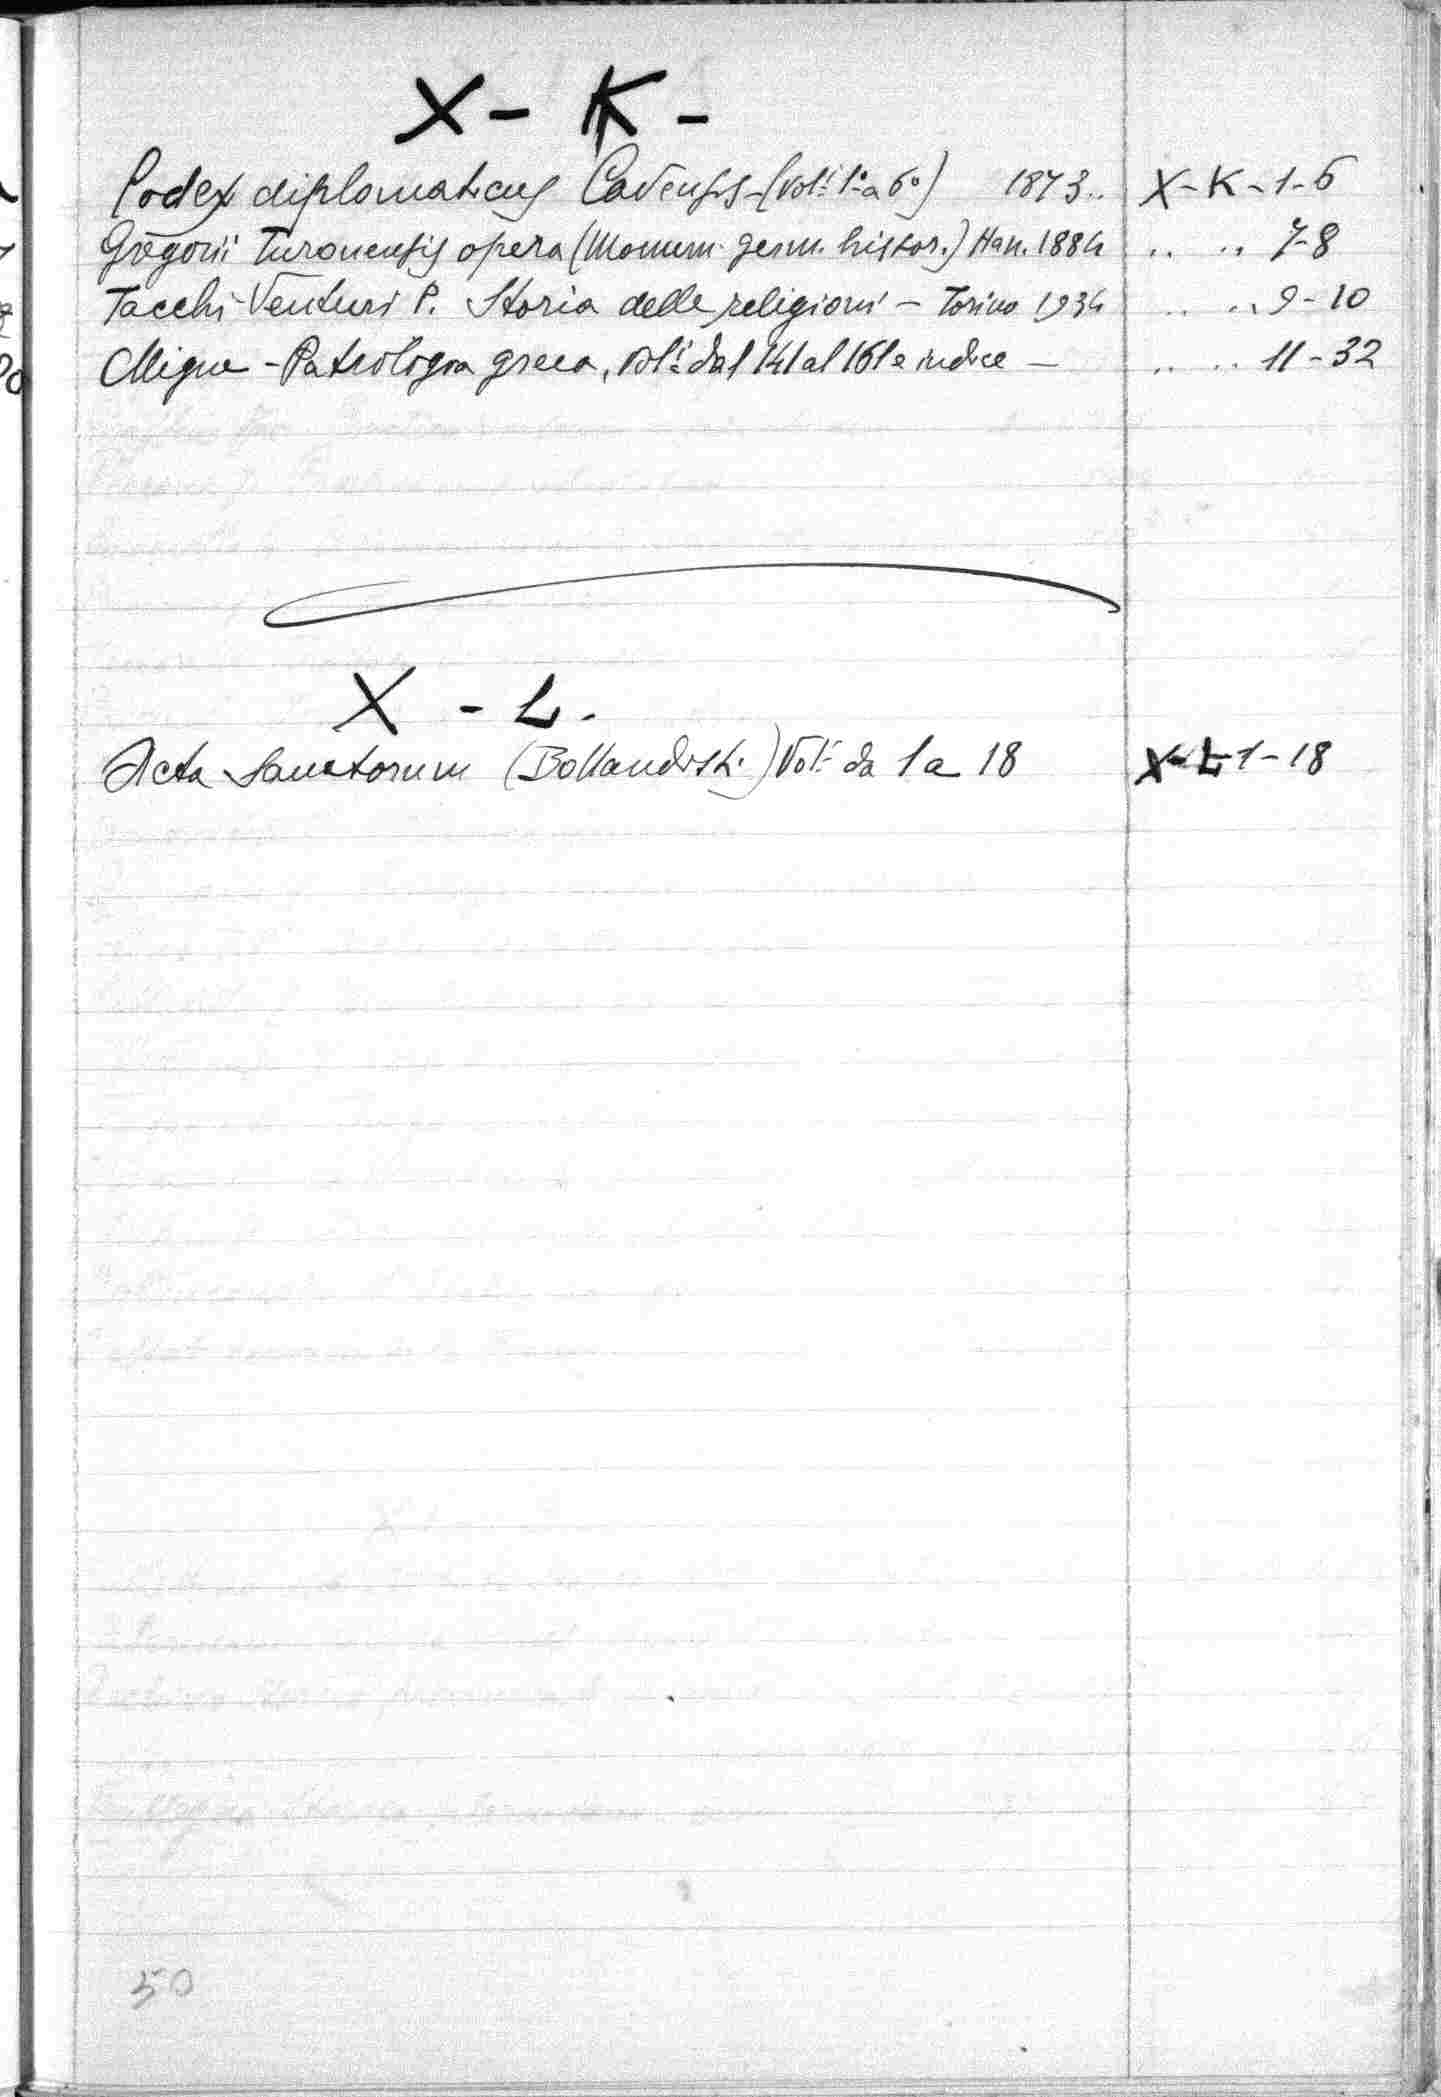 X - K -
Codex diplomaticus Cavensis - (Voli 1º a 6º) 1873.. X - K - 1-6
Gregorii Turonensis opera (Monum. germ. histor.) Han. 1884 .. .. 7-8
Tacchi-Venturi P. Storia delle religioni - Torino 1934 .. .. 9-10
Migne - Patrologia greca, voli dal 141 al 161 e indice — .. .. 11-32
X - L -
Acta Sanctorum (Bollandisti.) Voli da 1 a 18 X-L-1-18
50